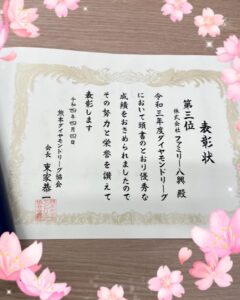 表彰状
第三位
株式会社 ファミリー八興 殿
令和三年度ダイヤモンドリーグ
において頭書のとおり優秀な
成績をおさめられましたので
その努力と栄誉を讃えて
表彰します
令和四年四月四日
熊本ダイヤモンドリーグ協会
会長 東家恭一